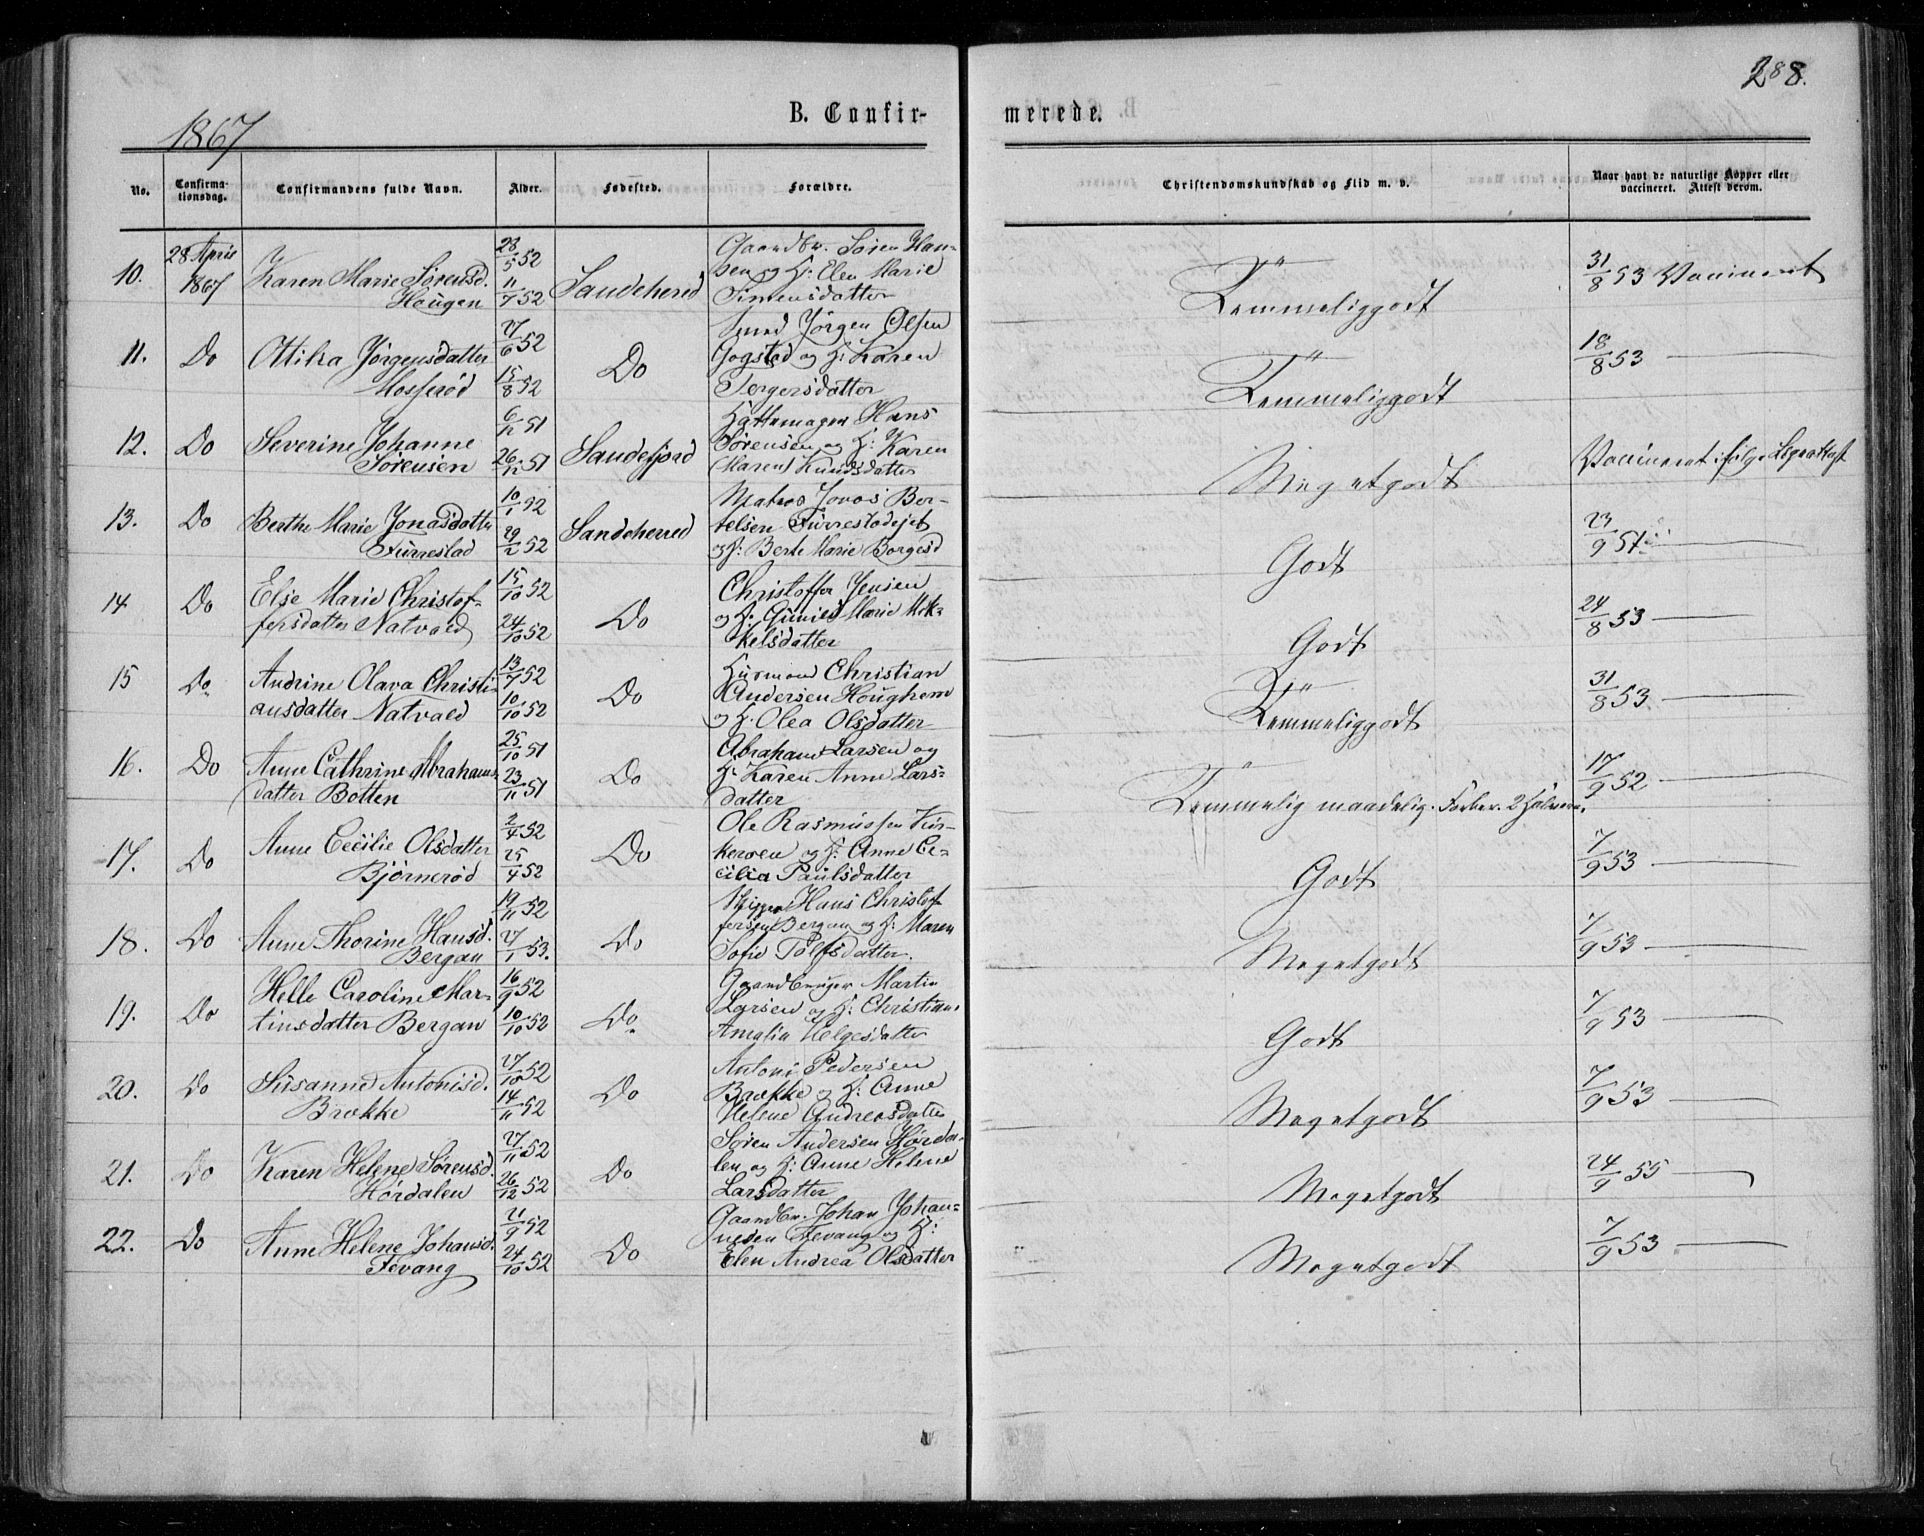 288.
1867
B. Confir-
merede.
No.
Confirma-
tionsdag.
Confirmandens fulde Navn.
Alder.
Fødested.
Forældre.
Christendomskundskab og Flid m. v.
Naar havt de naturlige Kopper eller
vaccineret. Attest derom.
10. 28 April 1867 Karen Marie Sørensd. Hougen 28/5 52 11/7 52 Sandeherred
Gaardbr. Søren Han-
sen og H: Elen Marie
Simensdatter
Temmeliggodt 31/8 53 Vaccineret
11. Do Ottilia Jørgensdatter Mosserød 27/6 52 15/8 52 Do
Smed Jørgen Olsen
Gogstad og H: Karen
Torgersdatter
Temmeliggodt 18/8 53 —
12. Do Severine Johanne Sørensen 6/12 51 26/12 51 Sandefjord
Hattemager Hans
Sørensen og H: Karen
(Maren) Knudsdatter
Megetgodt Vaccineret ifølge Lægeattest
13. Do Berthe Marie Jonasdatter Furrestad 10/1 52 29/2 52 Sandeherred
Matros Jonas Ber-
telsen Furrestadejet
og H: Berte Marie Borgesd
Godt 23/9 51 —
14 Do Else Marie Christof-
fersdatter Natvald 15/10 52 24/10 52 Do
Christoffer Jensen
og H: Gunild Marie Mik-
kelsdatter
Godt 24/8 53 —
15 Do. Andrine Olava Christi-
ansdatter Natvald 13/7 52 10/10 52 Do
Husmand Christian
Andersen Houghem
og H. Olea Olsdatter
Temmeliggodt 31/8 53 —
16. Do Anne Cathrine Abrahams-
datter Botten 25/10 51 23/11 51 Do
Abraham Larsen og
H: Karen Anne Lars-
datter
Temmelig maadelig. Forber. 2 Halvaar. 17/9 52 —
17. Do Anne Cecilie Olsdatter Bjørnerød 2/4 52 25/4 52 Do
Ole Rasmussen Kir-
keroen og H: Anne Ce-
cilia Paulsdatter
Godt 7/9 53 —
18. Do Anne Thorine Hansd. Bergan 19/11 52 27/1 53. Do
Skipper Hans Christof-
fersen Bergan og H: Maren
Sofie Tolfsdatter.
Megetgodt 7/9 53 —
19. Do Helle Caroline Mar-
tinsdatter Bergan 16/9 52 10/10 52 Do.
Gaardbruger Martin
Larsen og H: Christian.
Amalia Helgesdatter
Godt 7/9 53 —
20. Do Susanne Antonisd. Brække 27/10 52 14/11 52 Do
Antoni Pedersen
Brække og H: Anne
Helene Andreasdatter
Megetgodt 7/9 53 —
21. Do Karen Helene Sørensd. Hørdalen 27/11 52 26/12 52 Do
Søren Andersen Hørda-
len og H: Anne Helene
Larsdatter
Megetgodt 24/9 55 —
22. Do Anne Helene Johansd. Fevang 21/9 52 24/10 52 Do
Gaardbr. Johan Johan-
nesen Fevang og H:
Elen Andrea Olsdatter
Megetgodt 7/9 53 —